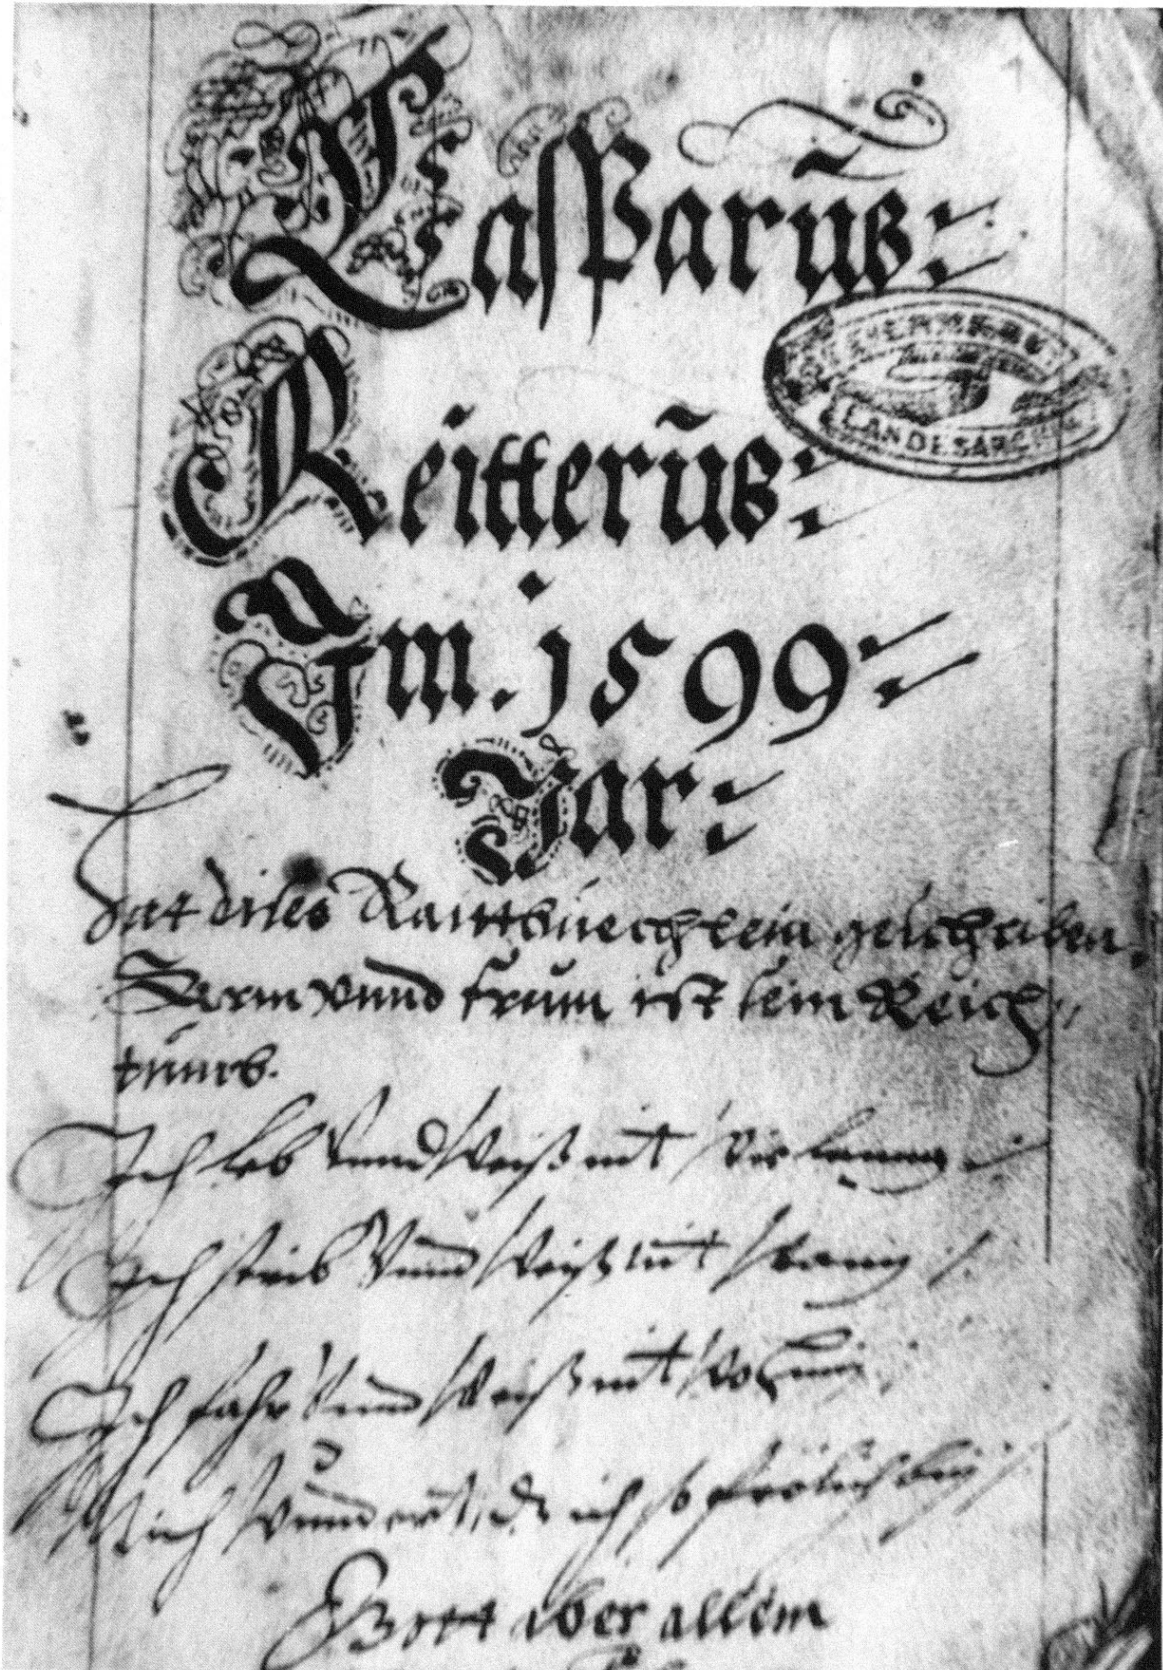 Casparuß:
Reitterus:
Im. 1599:
Jar:
Hat dises Raittbuechlein geschriben.
Arm vnnd frum ist sein Reich,,
tumb.
Ich leb Vnnd Weiß nit Wie lanng
Ich stirb Vnnd Weiß nit Wann
Ich fahr Vnnd Weiß nit Wohin
Mich Wundert, dz ich so frölich bin
Gott aber allem
LANDESARCHIV